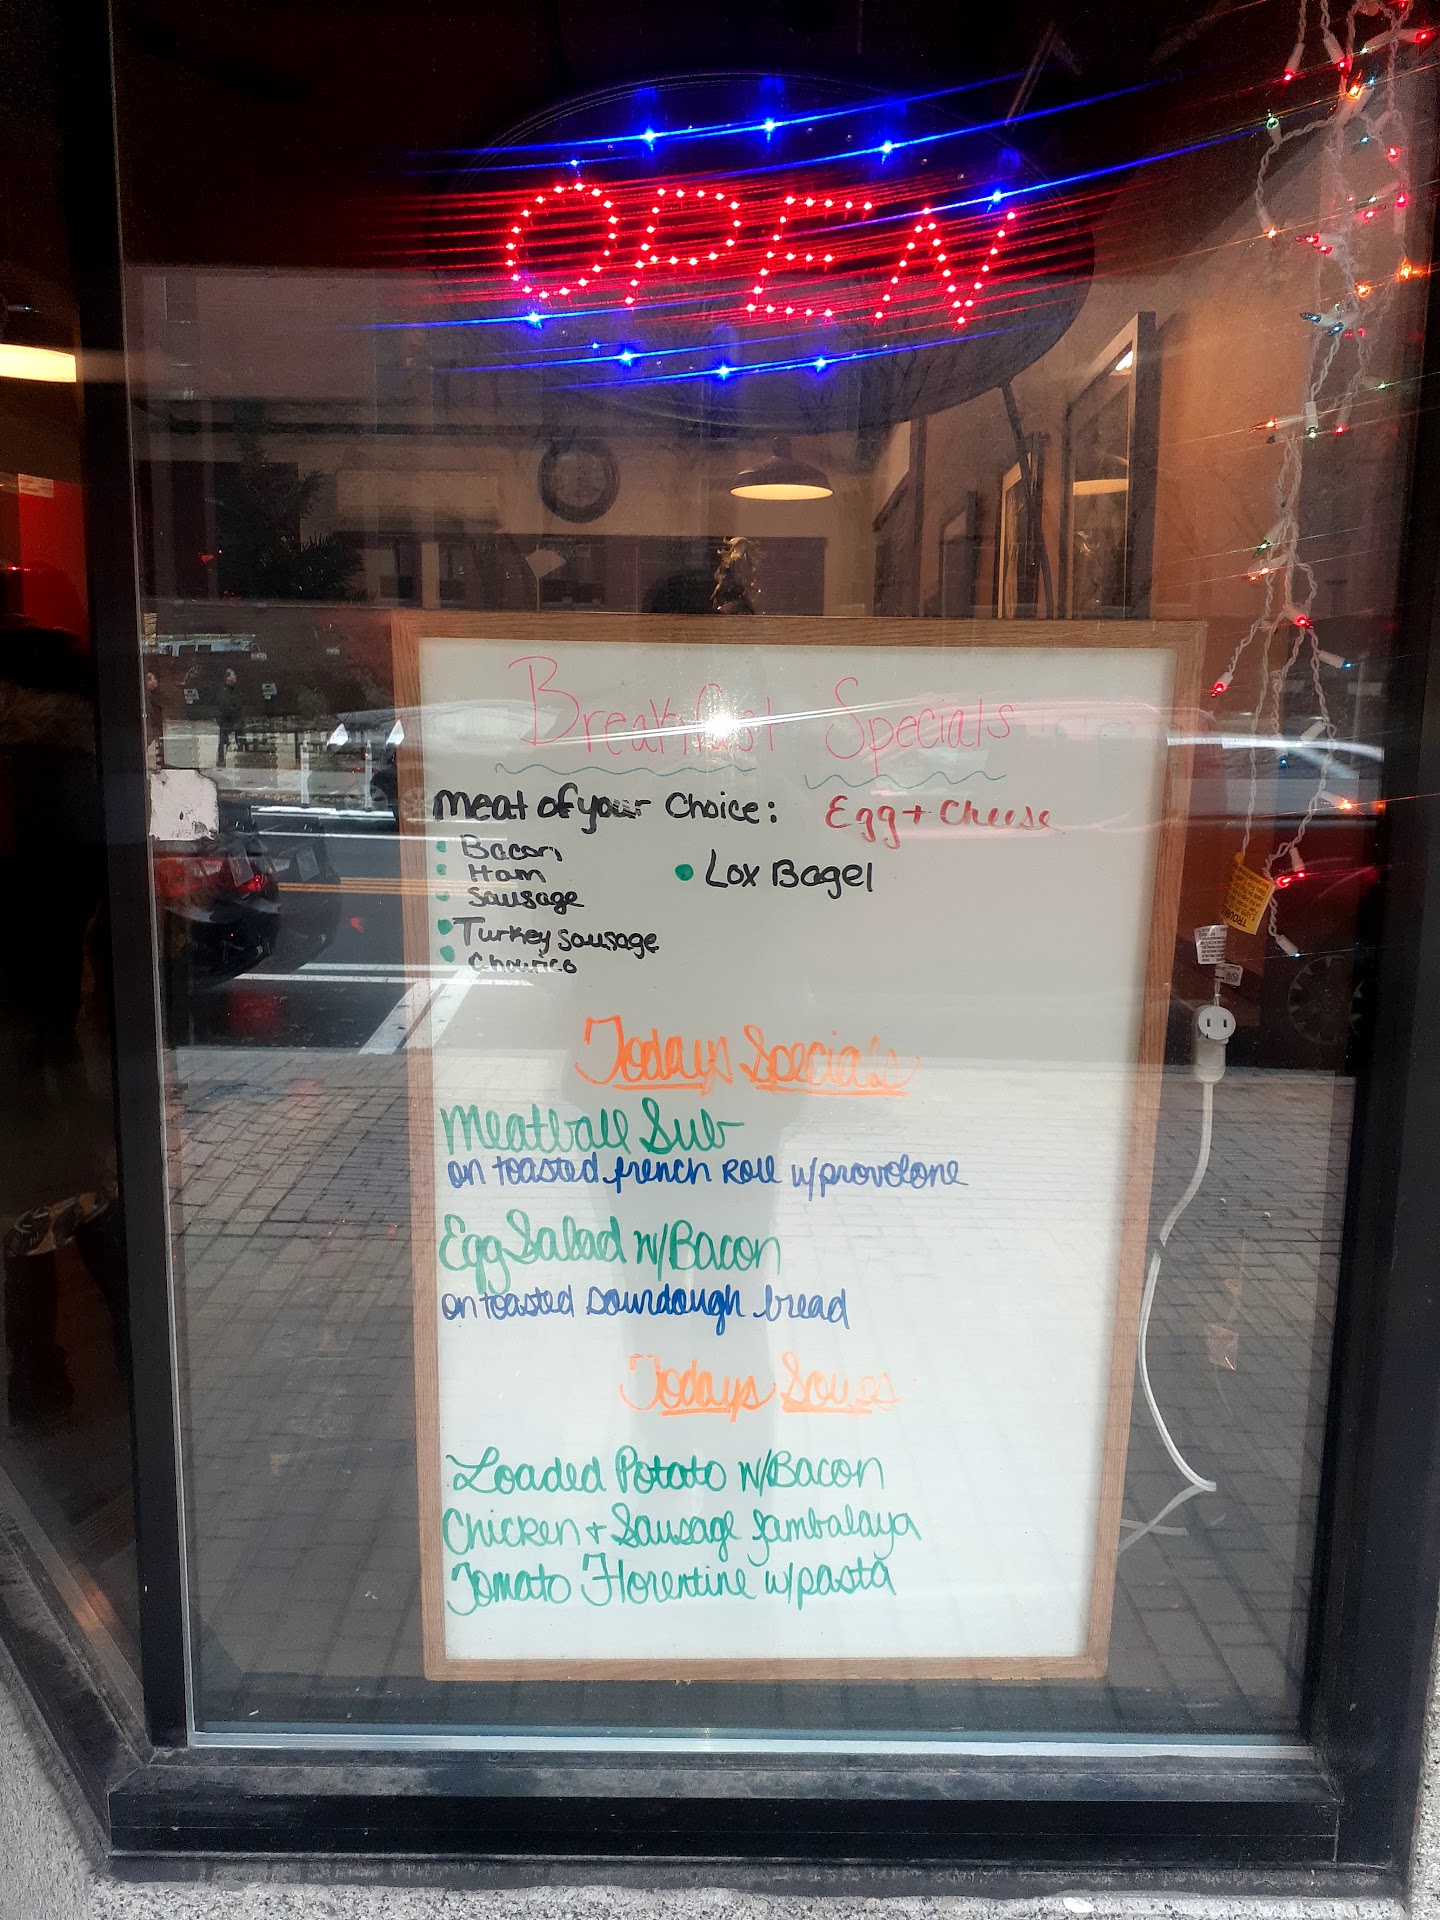 OPEN
Breakfast Specials
Meat of your Choice: Egg + Cheese
• Bacon
• Ham
• Sausage
• Turkey sausage
• Chourico
• Lox Bagel
Todays Specials
Meatball Sub
on toasted french roll w/provolone
Egg Salad w/Bacon
on toasted sourdough bread
Todays Soups
Loaded Potato w/Bacon
Chicken + Sausage Jambalaya
Tomato Florentine w/pasta